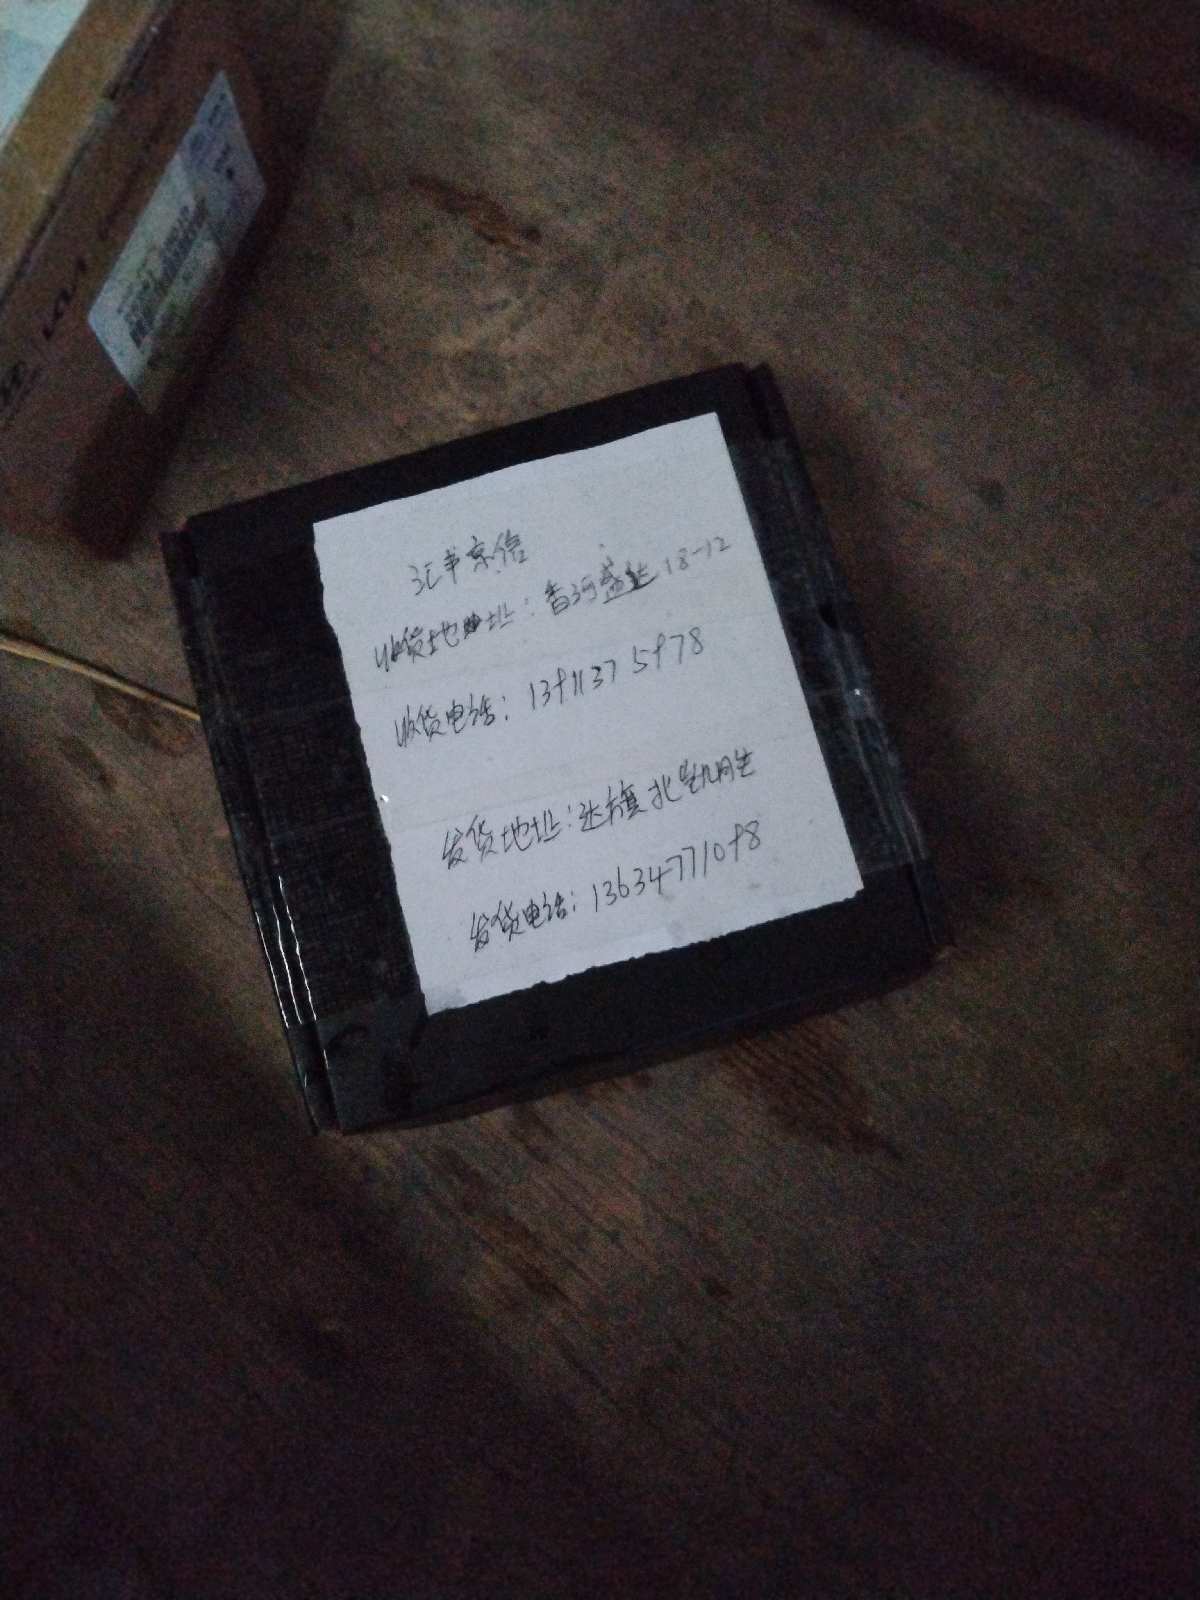 汇丰京信
收货地址：香河盛达 18-12
收货电话：13911375978
发货地址：达旗北凯朋生
发货电话：13634771098